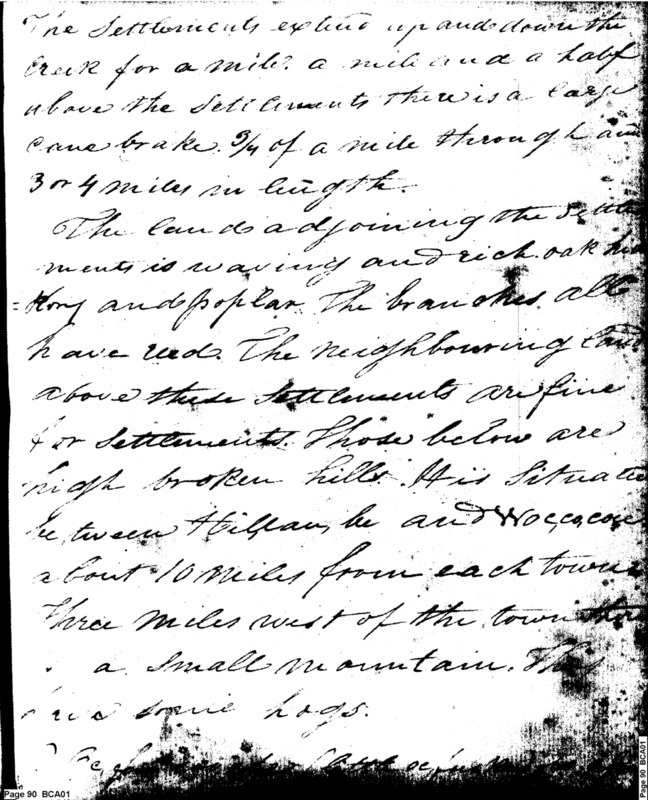 The Settlements extend up and down the
creek for a mile. a mile and a half
above the Settlements there is a large
cane brake 3/4 of a mile through and
3 or 4 miles in length.
The lands adjoining the Settle
ments is waving and rich oak hic
= kory and poplar. The branches all
have reed. The neighbouring land
above these Settlements are fine
for Settlements. Those below are
high broken hills. It is Situated
be tween and
about 10 miles from each town
three miles west of the town there
a Small mountain. They
have some hogs.
Page 90 BCA01
Page 90 BCA01